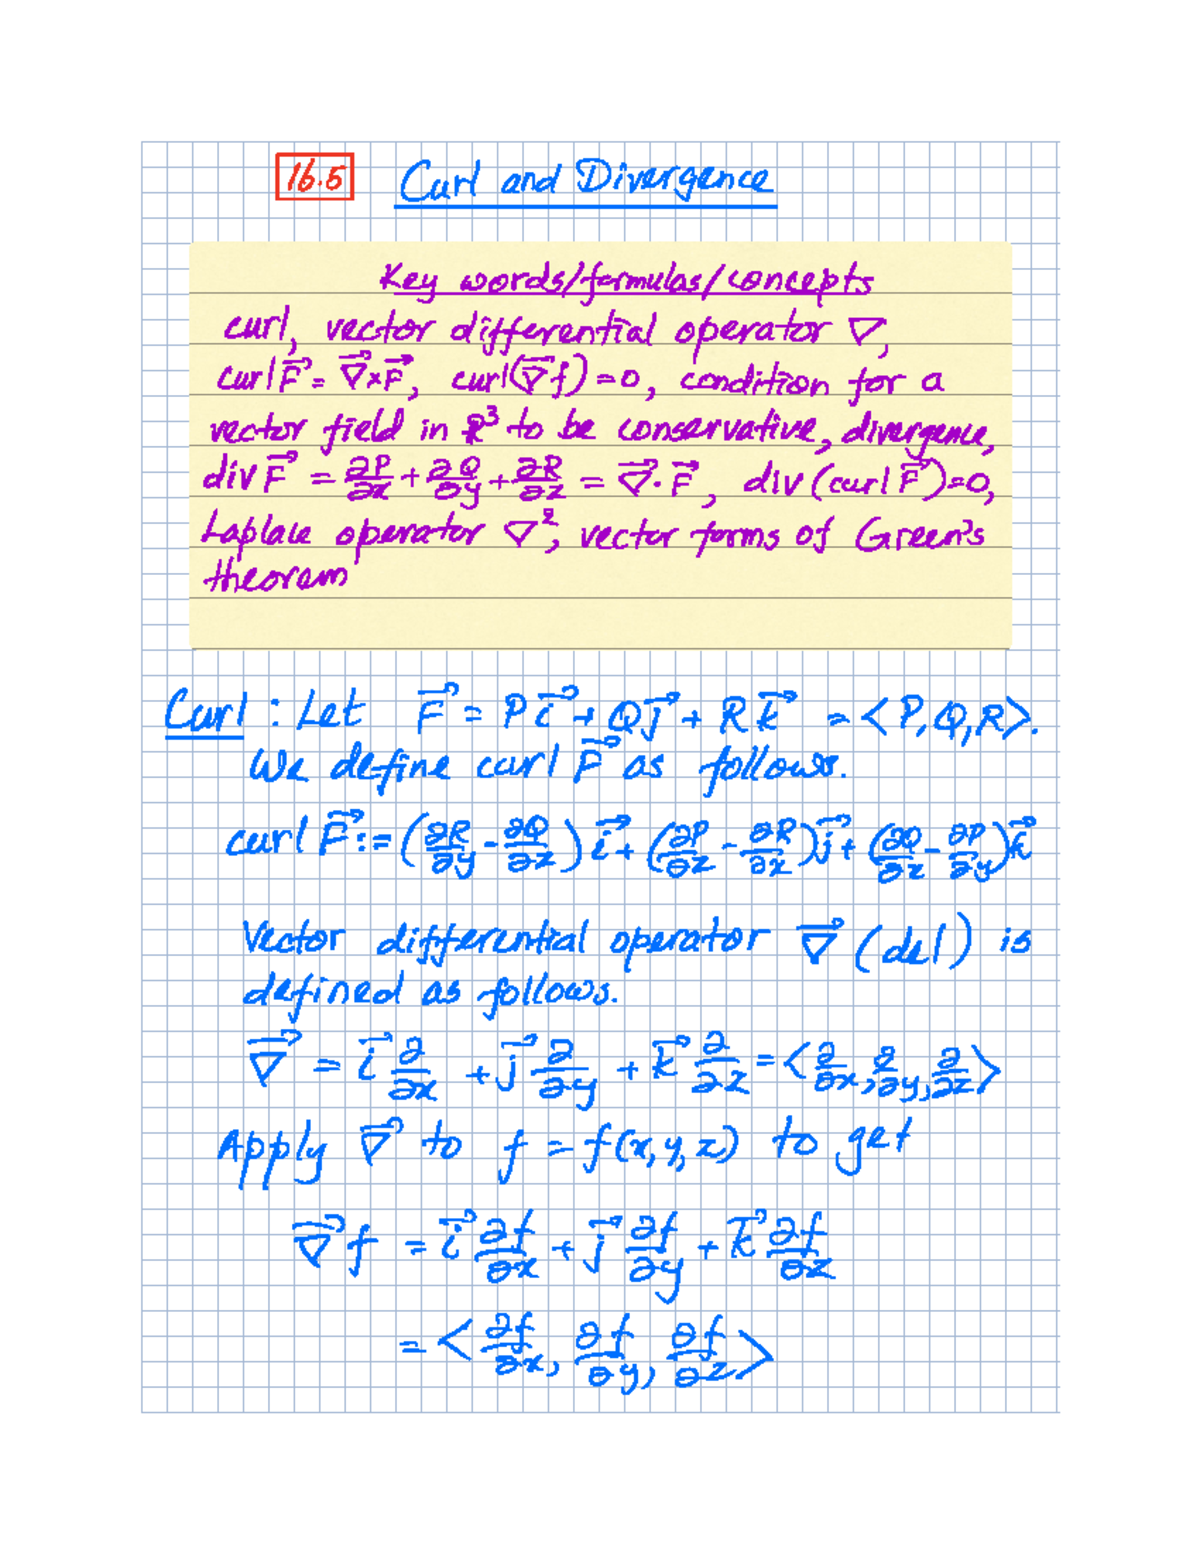 16.5 Curl and Divergence
Key words/formulas/concepts
curl, vector differential operator ∇,
curl F⃗ = ∇⃗×F⃗, curl(∇⃗f)=0, condition for a
vector field in ℝ³ to be conservative, divergence,
div F⃗ = ∂P/∂x + ∂Q/∂y + ∂R/∂z = ∇⃗·F⃗, div(curl F⃗)=0,
Laplace operator ∇², vector forms of Green's
theorem
Curl : Let F⃗ = P i⃗ + Q j⃗ + R k⃗ = <P,Q,R>.
We define curl F⃗ as follows.
curl F⃗ := (∂R/∂y - ∂Q/∂z) i⃗ + (∂P/∂z - ∂R/∂x) j⃗ + (∂Q/∂x - ∂P/∂y) k⃗
Vector differential operator ∇⃗ (del) is
defined as follows.
∇⃗ = i⃗ ∂/∂x + j⃗ ∂/∂y + k⃗ ∂/∂z = <∂/∂x, ∂/∂y, ∂/∂z>
Apply ∇⃗ to f = f(x,y,z) to get
∇⃗f = i⃗ ∂f/∂x + j⃗ ∂f/∂y + k⃗ ∂f/∂z
= <∂f/∂x, ∂f/∂y, ∂f/∂z>